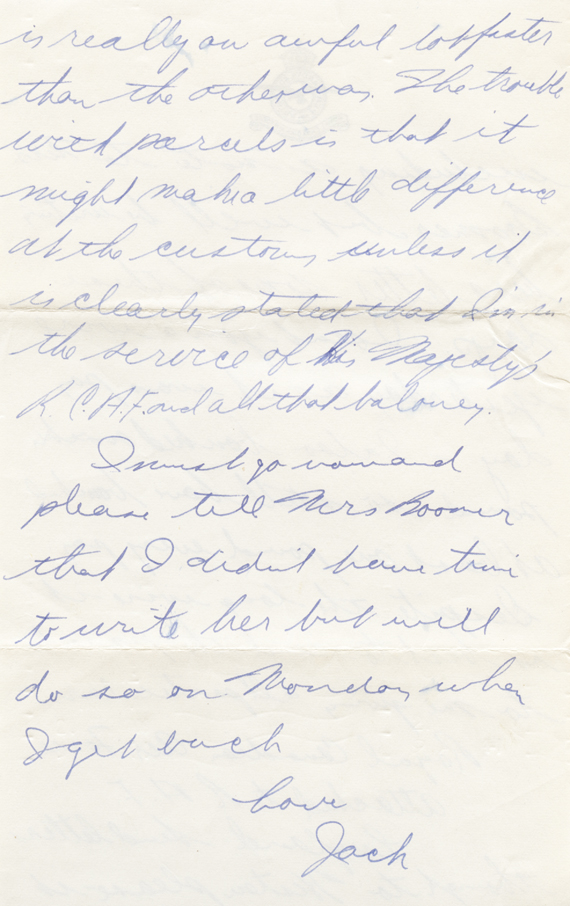 is really an awful lot faster
than the other way. The trouble
with parcels is that it
might make a little difference
at the customs unless it
is clearly stated that I'm in
the service of His Majesty's
R.C.A.F. and all that baloney.
I must go now and
please tell Mrs
that I didn't have time
to write her but will
do so on Monday when
I get back
Love
Jack